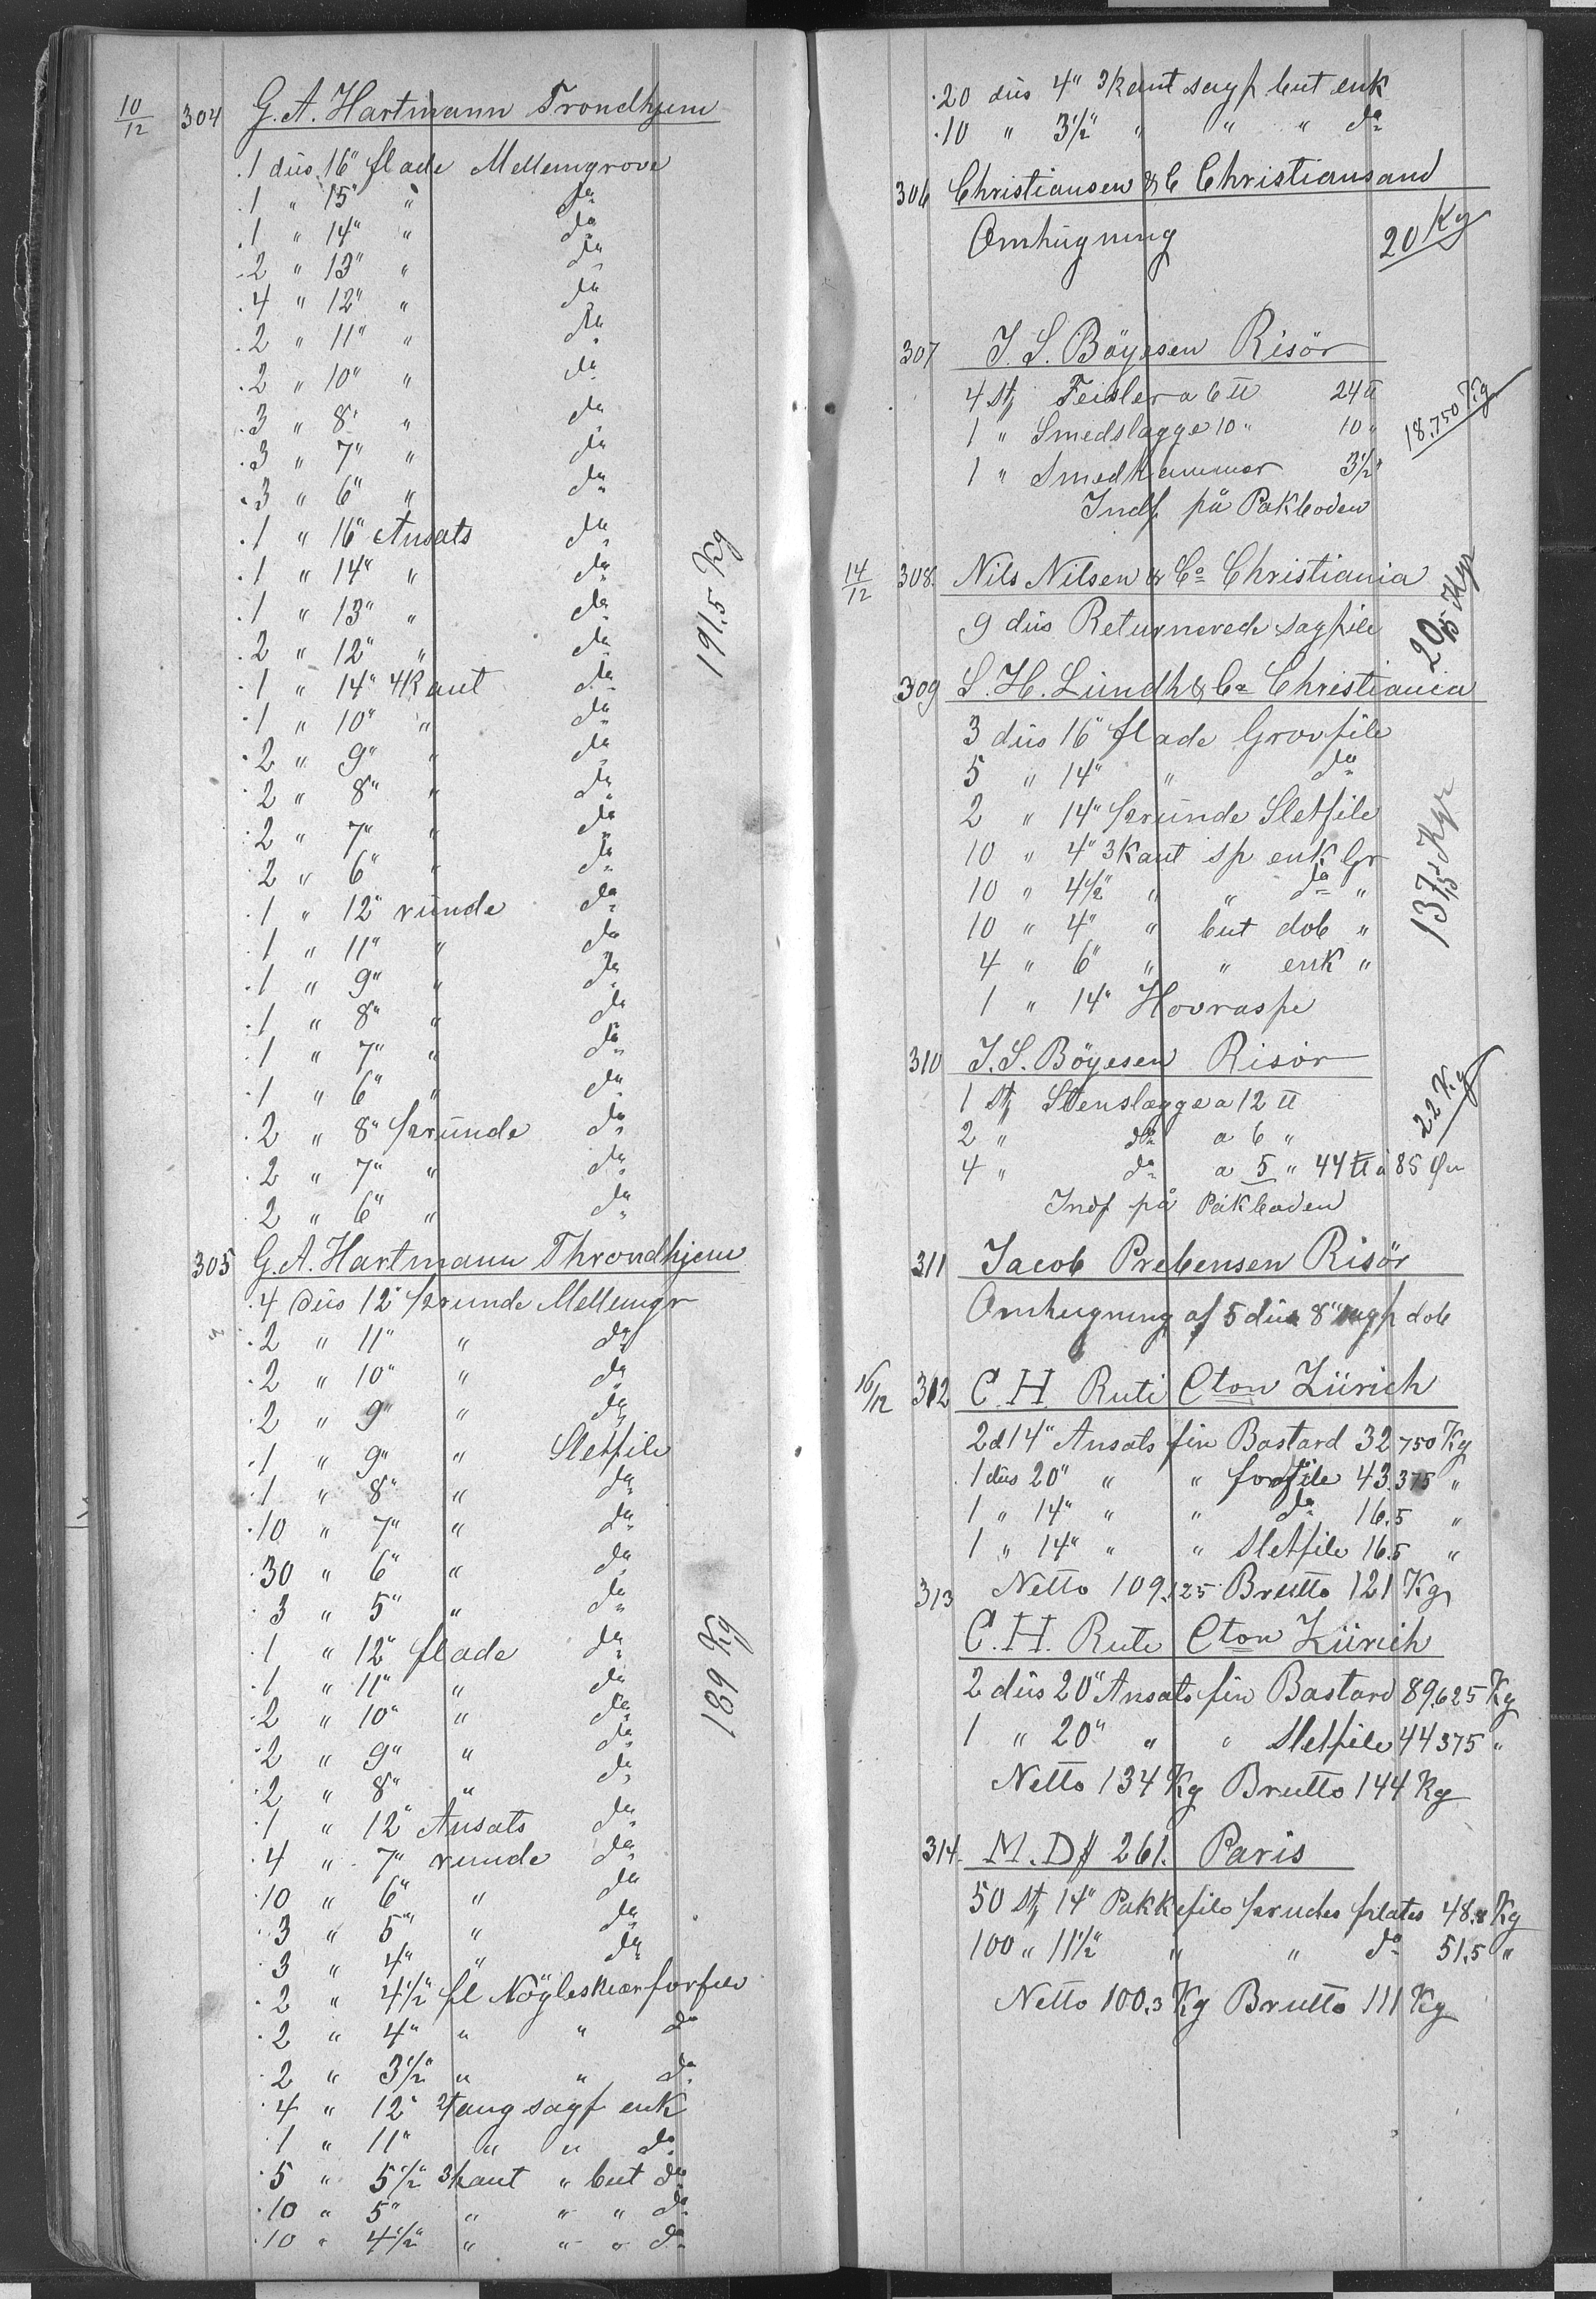 10/12 304 G. A. Hartmann Trondhjem
1 düs 16" flade Mellemgrove
1 " 15" " do
1 " 14" " do
2 " 13" " do
4 " 12" " do
2 " 11" " do
2 " 10" " do
3 " 8" " do
3 " 7" " do
3 " 6" " do
1 " 16" Ansats do
1 " 14" " do
1 " 13" " do
2 " 12" " do
1 " 14" 4Kant do
1 " 10" " do
2 " 9" " do
2 " 8" " do
2 " 7" " do
2 " 6" " do
1 " 12" ründe do
1 " 11" " do
1 " 9" " do
1 " 8" " do
1 " 7" " do
1 " 6" " do
2 " 8" ½ründe do
2 " 7" " do
2 " 6" " do
191.5 Kg
305 G. A. Hartmann Throndhjem
4 düs 12" ½runde Mellemgr
2 " 11" " do
2 " 10" " do
2 " 9" " do
1 " 9" " Sletfile
1 " 8" " do
10 " 7" " do
30 " 6" " do
3 " 5" " do
1 " 12" flade do
1 " 11" " do
2 " 10" " do
2 " 9" " do
2 " 8" " do
1 " 12" Ansats do
4 " 7" runde do
10 " 6" " do
3 " 5" " do
3 " 4" " do
2 " 4½" fl Nögleskiær forfile
2 " 4" " " do
2 " 3½" " " do
4 " 12" 2tang sagf enk
1 " 11" " " do
5 " 5½" 3kant " but do
10 " 5" " " " do
10 " 4½" " " " do
189 Kg
20 düs 4" 3kant sagf but enk
10 " 3½" " " " do
306 Christiansen & C Christiansand
Omhügning 20 Kg
307 J. S. Böyesen Risör
4 Stz Feisler a 6 ℔ 24 ℔
1 " Smedslægge 10 " 10 "
1 " Smedhammer 3½ "
Indf på Pakboden
18.750 Kg
14/12 308. Nils Nilsen & Co Christiania
9 düs Returnerede sagfile
20,5 Kgr
309 S. H. Lündh & Co Christiania
3 düs 16" flade Grovfile
5 " 14" " do
2 " 14" ½ründe Sletfile
10 " 4" 3Kant sp enk Gr
10 " 4½" " " do "
10 " 4" " but dob "
4 " 6" " " enk "
1 " 14" Hovraspe
137,5 Kgr
310 J. S. Böyesen Risör
1 Stz Stenslægge a 12 ℔
2 " do a 6 "
4 " do a 5 " 44 ℔ à 85 Øre
Indf på Pakboden
22 Kg
311 Jacob Prebensen Risör
Omhugning af 5 düs 8" sagf dob
16/12 312 C. H. Ruti Cton Zürich
2 d 14" Ansats fin Bastard 32.750 Kg
1 düs 20" " " forfile 43.375 "
1 " 14" " " do 16.5 "
1 " 14" " " Sletfile 16.5 "
Netto 109.125 Brutto 121 Kg
313 C. H. Ruti Cton Zürich
2 düs 20" Ansats fin Bastard 89.625 Kg
1 " 20" " " Sletfile 44375 "
Netto 134 Kg Brutto 144 Kg
314. M. D # 261. Paris
50 Stz 14" Pakkefile plates 48.8 Kg
100 " 11½" " " do 51.5 "
Netto 100.3 Kg Brutto 111 Kg